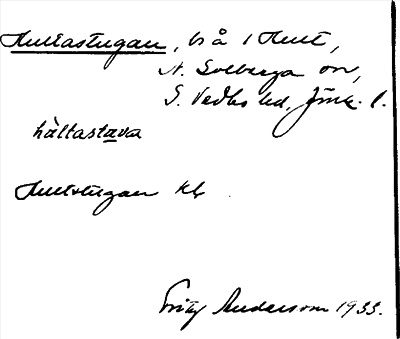 Hultastugan, bs å 1 Hult,
N. Solberga sn,
S. Vedbo hd, Jönk. l.
hàltastava
Hultstugan Kb
Fritz Andersson 1933.